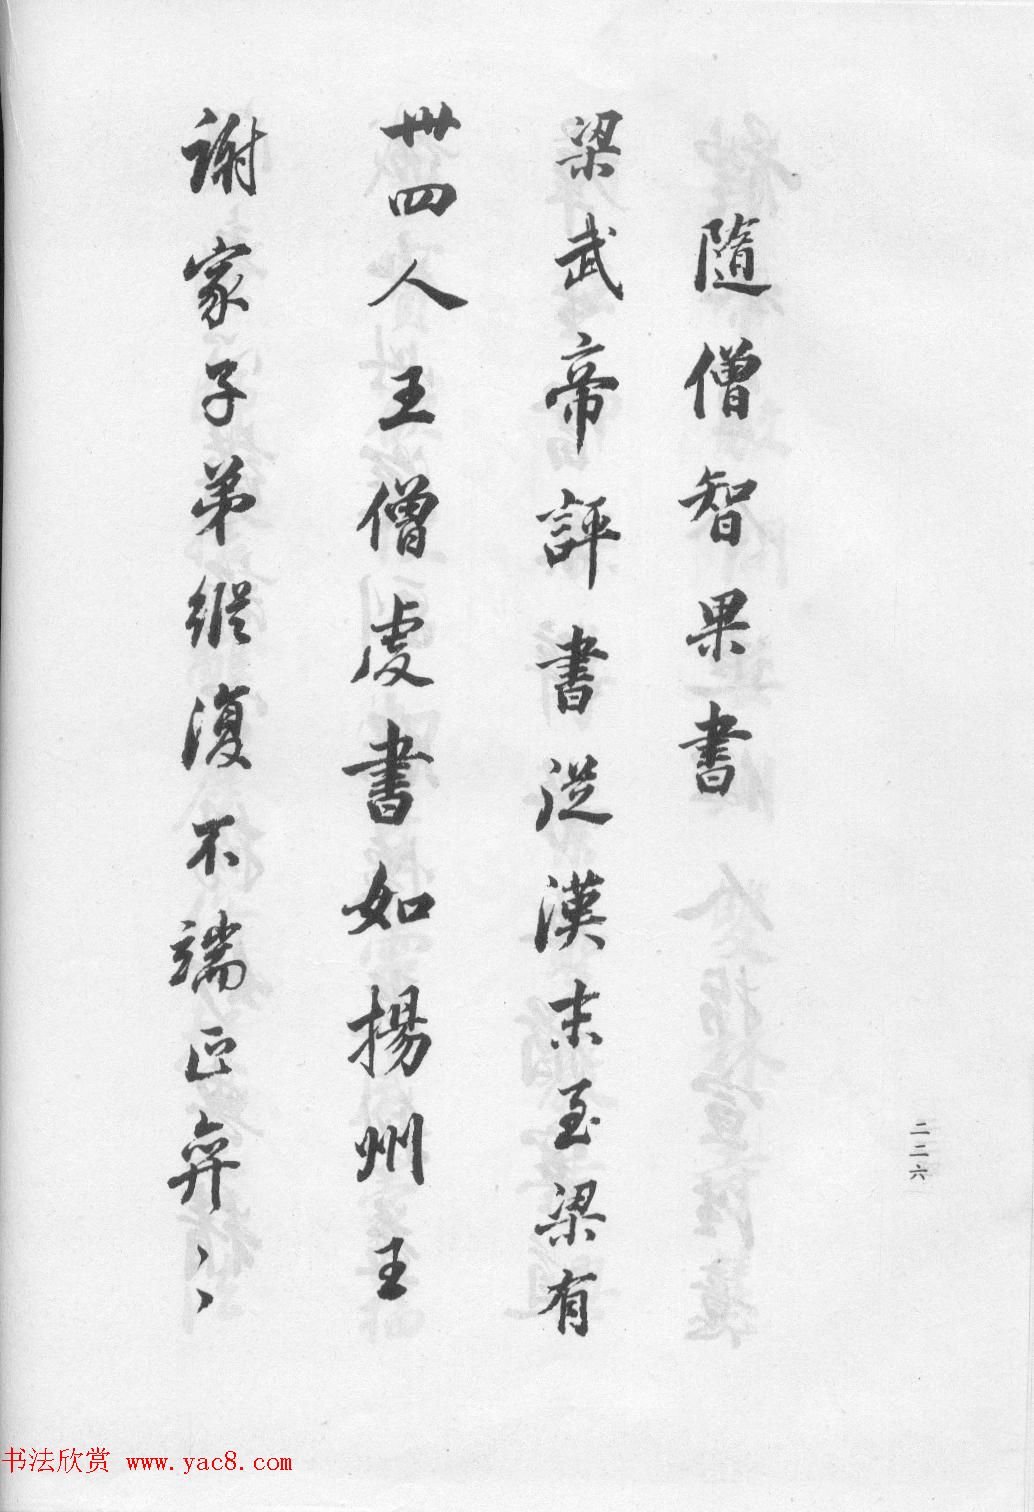 隨僧智果書
梁武帝評書從漢末至梁有
卅四人王僧虔書如揚州王
謝家子弟縱復不端正奕〻
二二六
书法欣赏 www.yac8.com